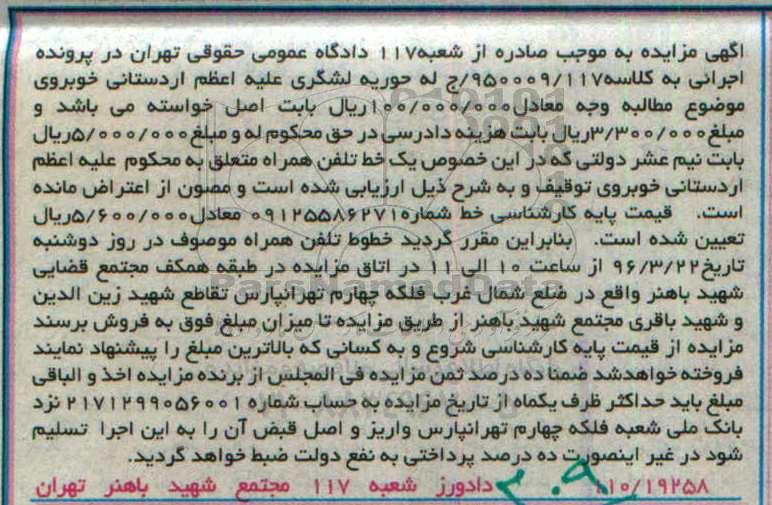 اگهی مزایده به موجب صادره از شعبه۱۱۷ دادگاه عمومی حقوقی تهران در پرونده
اجرائی به کلاسه۹۵۰۰۰۹/۱۱۷/ج له حوریه لشگری علیه اعظم اردستانی خوبروی
موضوع مطالبه وجه معادل۱۰۰/۰۰۰/۰۰۰ریال بابت اصل خواسته می باشد و
مبلغ۳/۳۰۰/۰۰۰ریال بابت هزینه دادرسی در حق محکوم له و مبلغ۵/۰۰۰/۰۰۰ریال
بابت نیم عشر دولتی که در این خصوص یک خط تلفن همراه متعلق به محکوم علیه اعظم
اردستانی خوبروی توقیف و به شرح ذیل ارزیابی شده است و مصون از اعتراض مانده
است. قیمت پایه کارشناسی خط شماره۰۹۱۲۵۵۸۶۲۷۱ معادل۵/۶۰۰/۰۰۰ریال
تعیین شده است. بنابراین مقرر گردید خطوط تلفن همراه موصوف در روز دوشنبه
تاریخ۹۶/۳/۲۲ از ساعت ۱۰ الی ۱۱ در اتاق مزایده در طبقه همکف مجتمع قضایی
شهید باهنر واقع در ضلع شمال غرب فلکه چهارم تهرانپارس تقاطع شهید زین الدین
و شهید باقری مجتمع شهید باهنر از طریق مزایده تا میزان مبلغ فوق به فروش برسند
مزایده از قیمت پایه کارشناسی شروع و به کسانی که بالاترین مبلغ را پیشنهاد نمایند
فروخته خواهدشد ضمنا ده درصد ثمن مزایده فی المجلس از برنده مزایده اخذ و الباقی
مبلغ باید حداکثر ظرف یکماه از تاریخ مزایده به حساب شماره ۲۱۷۱۲۹۹۰۵۶۰۰۱ نزد
بانک ملی شعبه فلکه چهارم تهرانپارس واریز و اصل قبض آن را به این اجرا تسلیم
شود در غیر اینصورت ده درصد پرداختی به نفع دولت ضبط خواهد گردید.
۱۱۰/۱۹۲۵۸ دادورز شعبه ۱۱۷ مجتمع شهید باهنر تهران